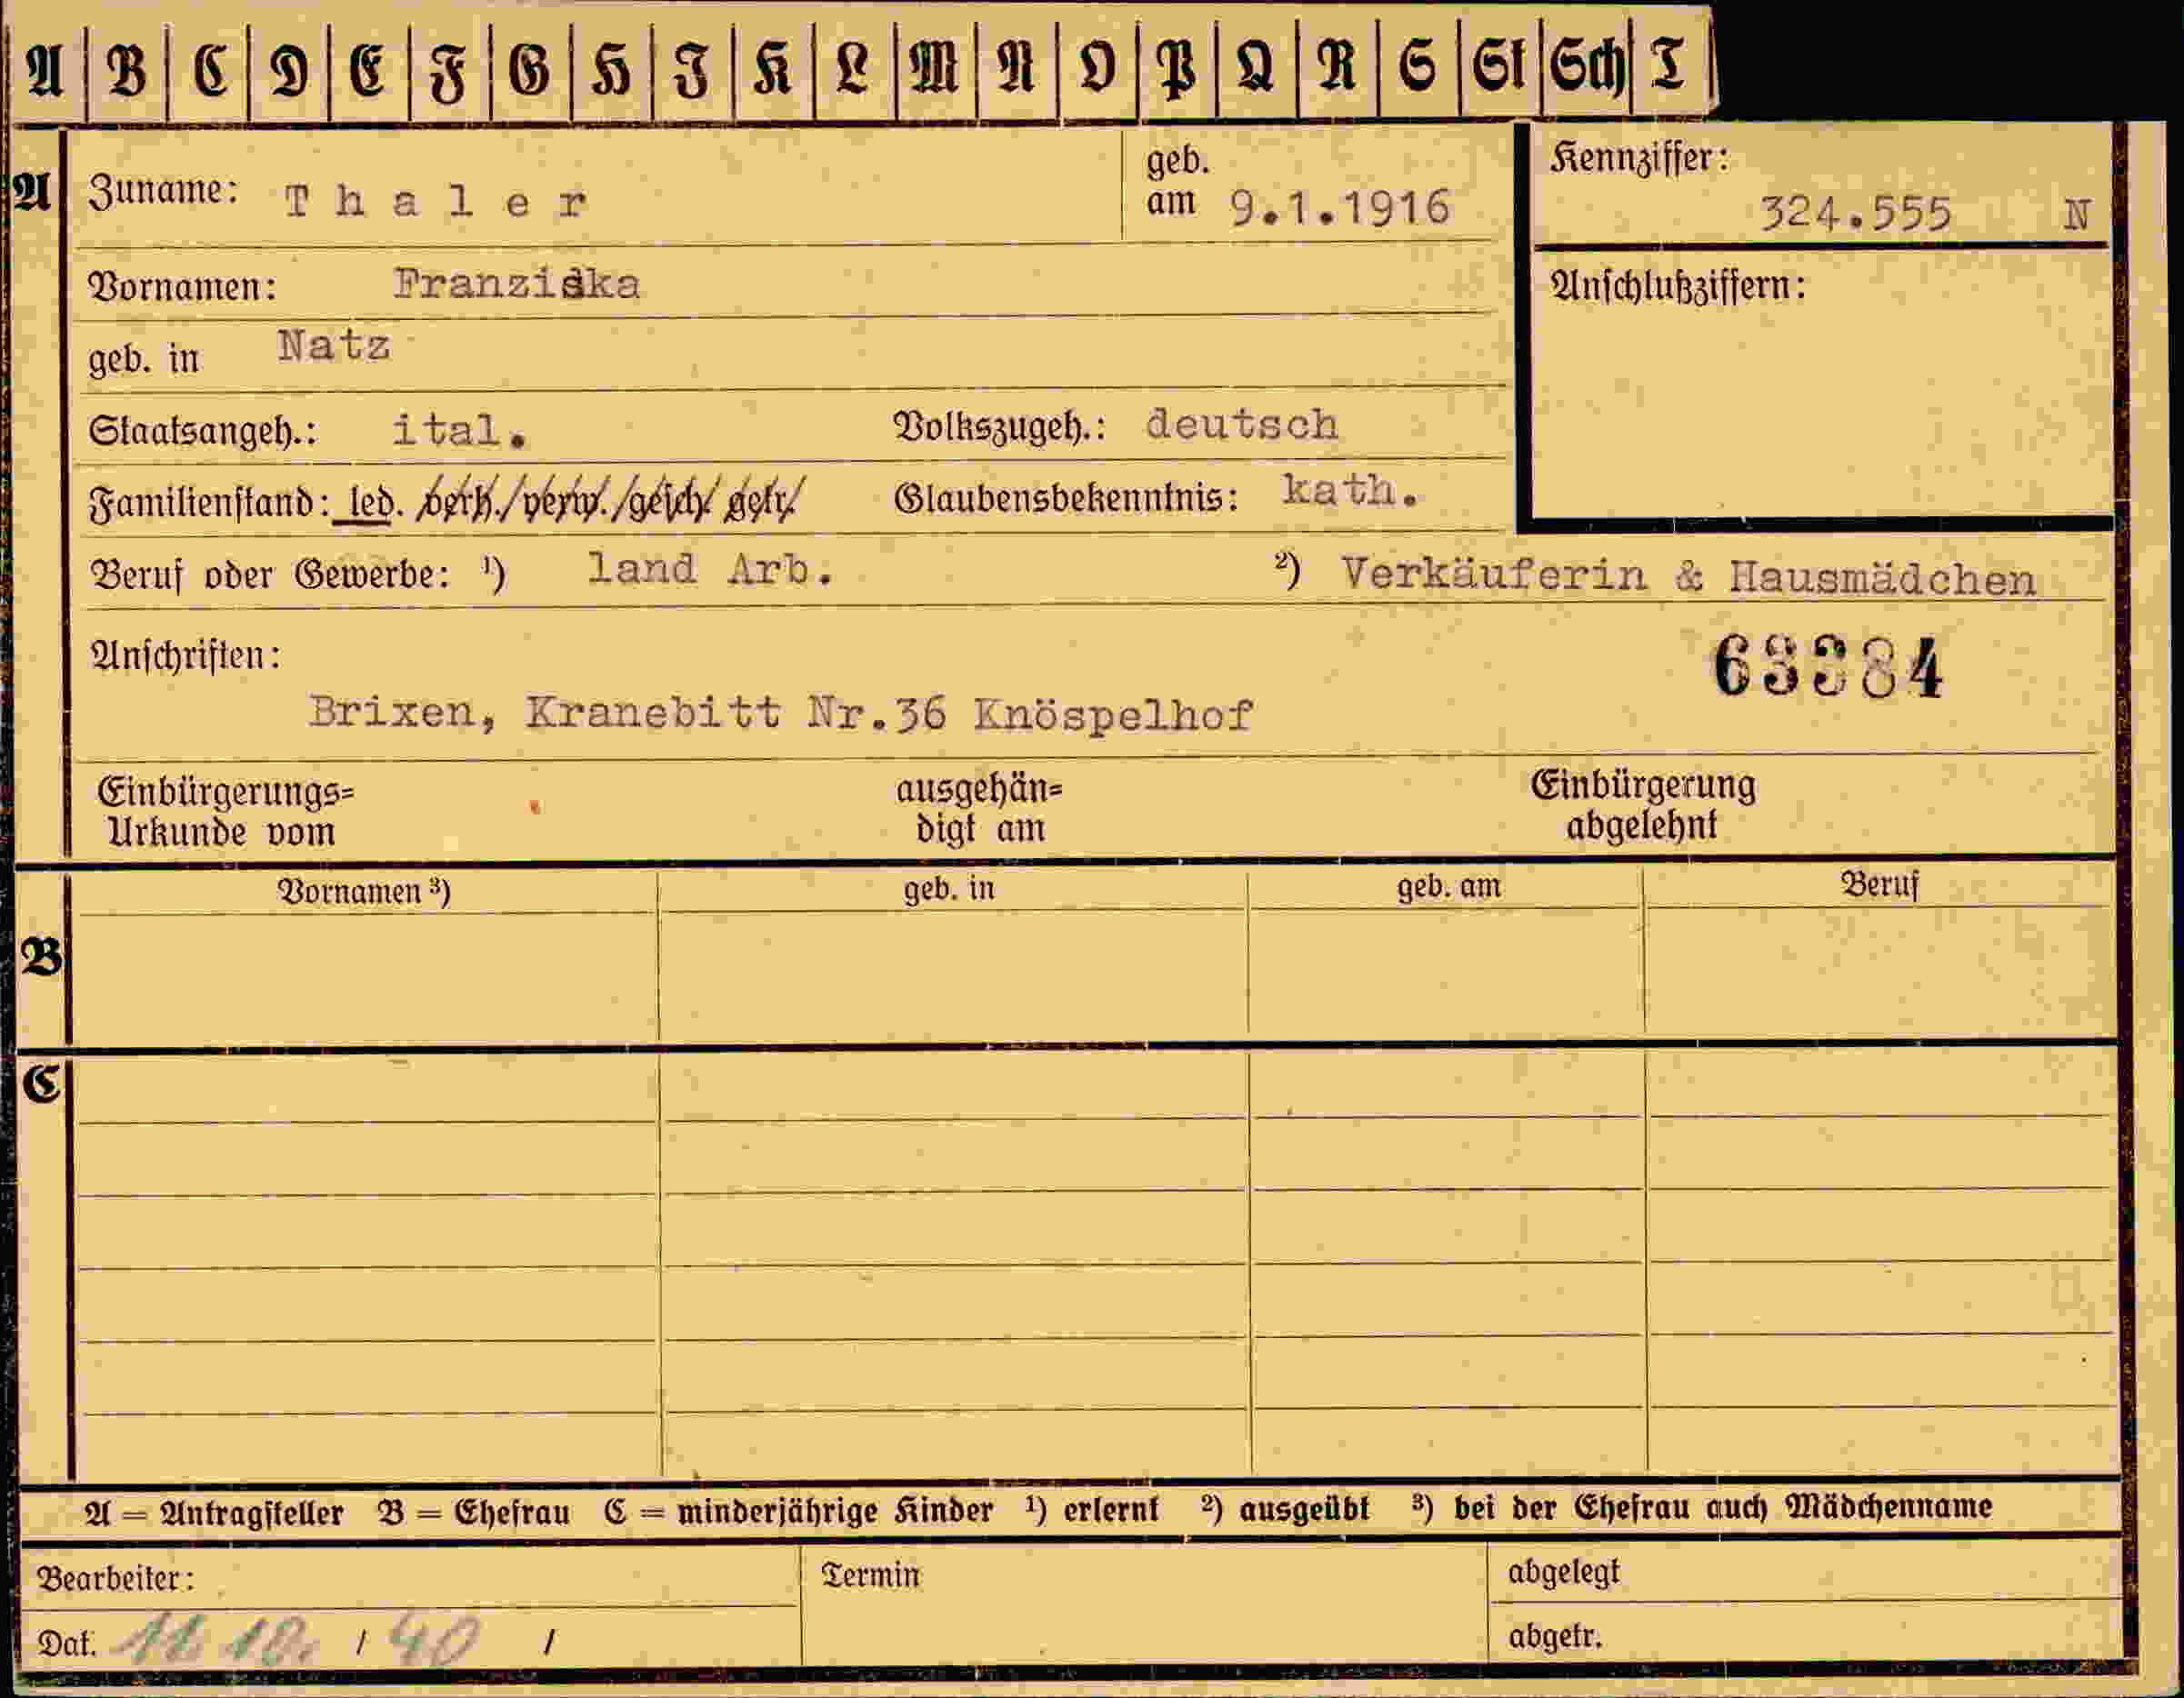 A B C D E F G H J K L M N O P Q R S St Sch T
A Zuname: Thaler geb. am 9.1.1916 Kennziffer: 324.555 N
Vornamen: Franziska Anschlußziffern:
geb. in Natz
Staatsangeh.: ital. Volkszugeh.: deutsch
Familienstand: led. verh./verw./gesch/ getr/ Glaubensbekenntnis: kath.
Beruf oder Gewerbe: ¹) land Arb. ²) Verkäuferin & Hausmädchen
Anschriften: 63384
Brixen, Kranebitt Nr.36 Knöspelhof
Einbürgerungs= ausgehän= Einbürgerung
Urkunde vom digt am abgelehnt
Vornamen ³) geb. in geb. am Beruf
B
C
A = Antragsteller B = Ehefrau C = minderjährige Kinder ¹) erlernt ²) ausgeübt ³) bei der Ehefrau auch Mädchenname
Bearbeiter: Termin abgelegt
Dat. 10. / 40 / abgetr.